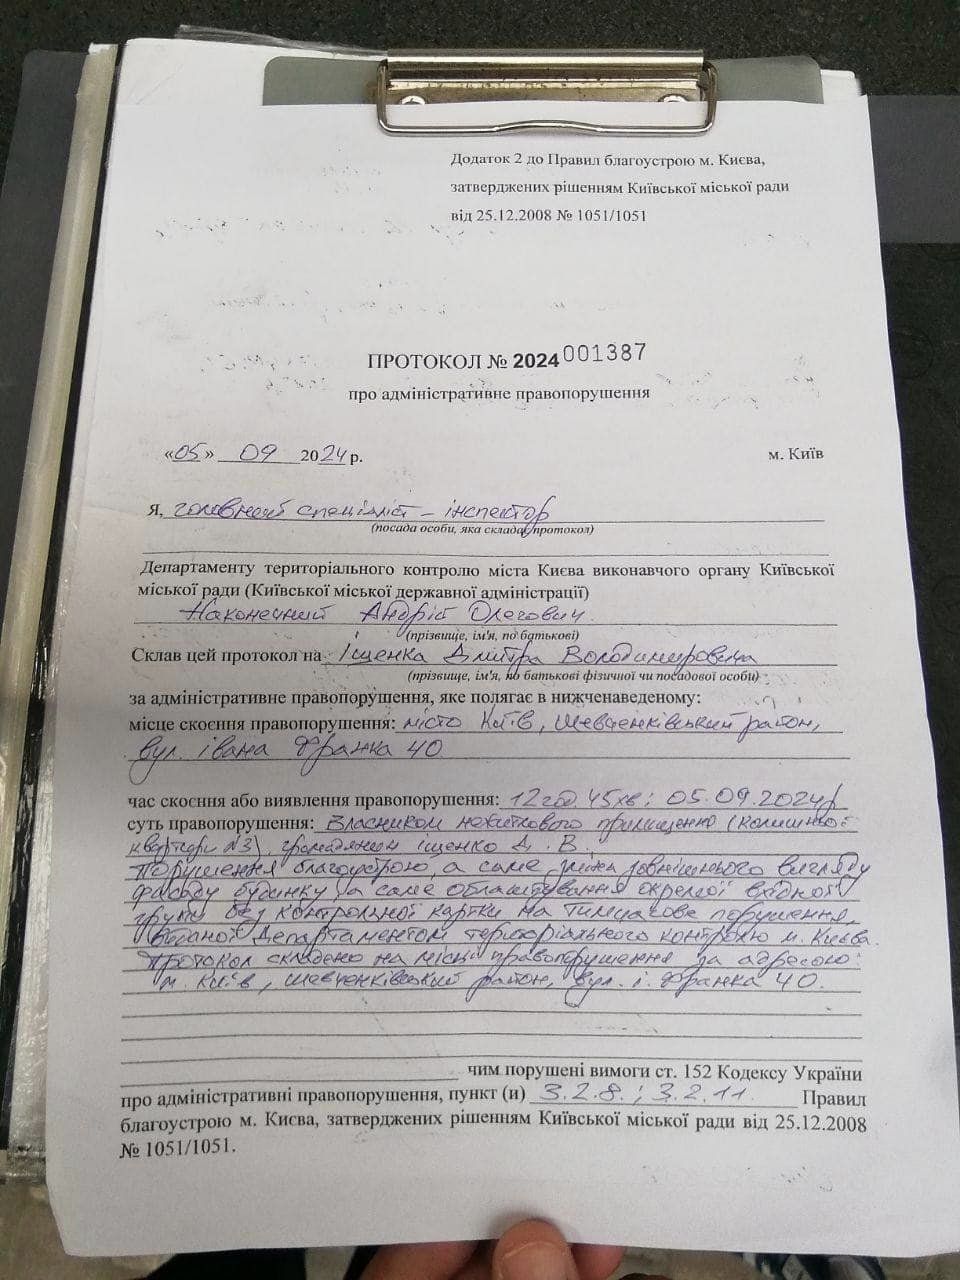 Додаток 2 до Правил благоустрою м. Києва,
затверджених рішенням Київської міської ради
від 25.12.2008 № 1051/1051
ПРОТОКОЛ № 2024 001387
про адміністративне правопорушення
«05» 09 2024 р. м. Київ
Я, головний спеціаліст – інспектор
(посада особи, яка склада протокол)
Департаменту територіального контролю міста Києва виконавчого органу Київської
міської ради (Київської міської державної адміністрації)
Наконечний Андрій Олегович.
(прізвище, ім'я, по батькові)
Склав цей протокол на Іщенка Дмитра Володимировича
(прізвище, ім'я, по батькові фізичної чи посадової особи)
за адміністративне правопорушення, яке полягає в нижченаведеному:
місце скоєння правопорушення: місто Київ, Шевченківський район,
вул. Івана Франка 40
час скоєння або виявлення правопорушення: 12 год. 45 хв; 05.09.2024р
суть правопорушення: Власником нежитлового приміщення (колишньої
квартири №3), громадянин Іщенко Д. В.
Порушення благоустрою, а саме зміна зовнішнього вигляду
фасаду будинку, а саме облаштування окремої вхідної
групи без контрольної картки на тимчасове порушення,
виданої Департаментом територіального контролю м. Києва.
Протокол складено на місці правопорушення за адресою:
м. Київ, Шевченківський район, вул. І. Франка 40.
чим порушені вимоги ст. 152 Кодексу України
про адміністративні правопорушення, пункт (и) 3.2.8.; 3.2.11. Правил
благоустрою м. Києва, затверджених рішенням Київської міської ради від 25.12.2008
№ 1051/1051.